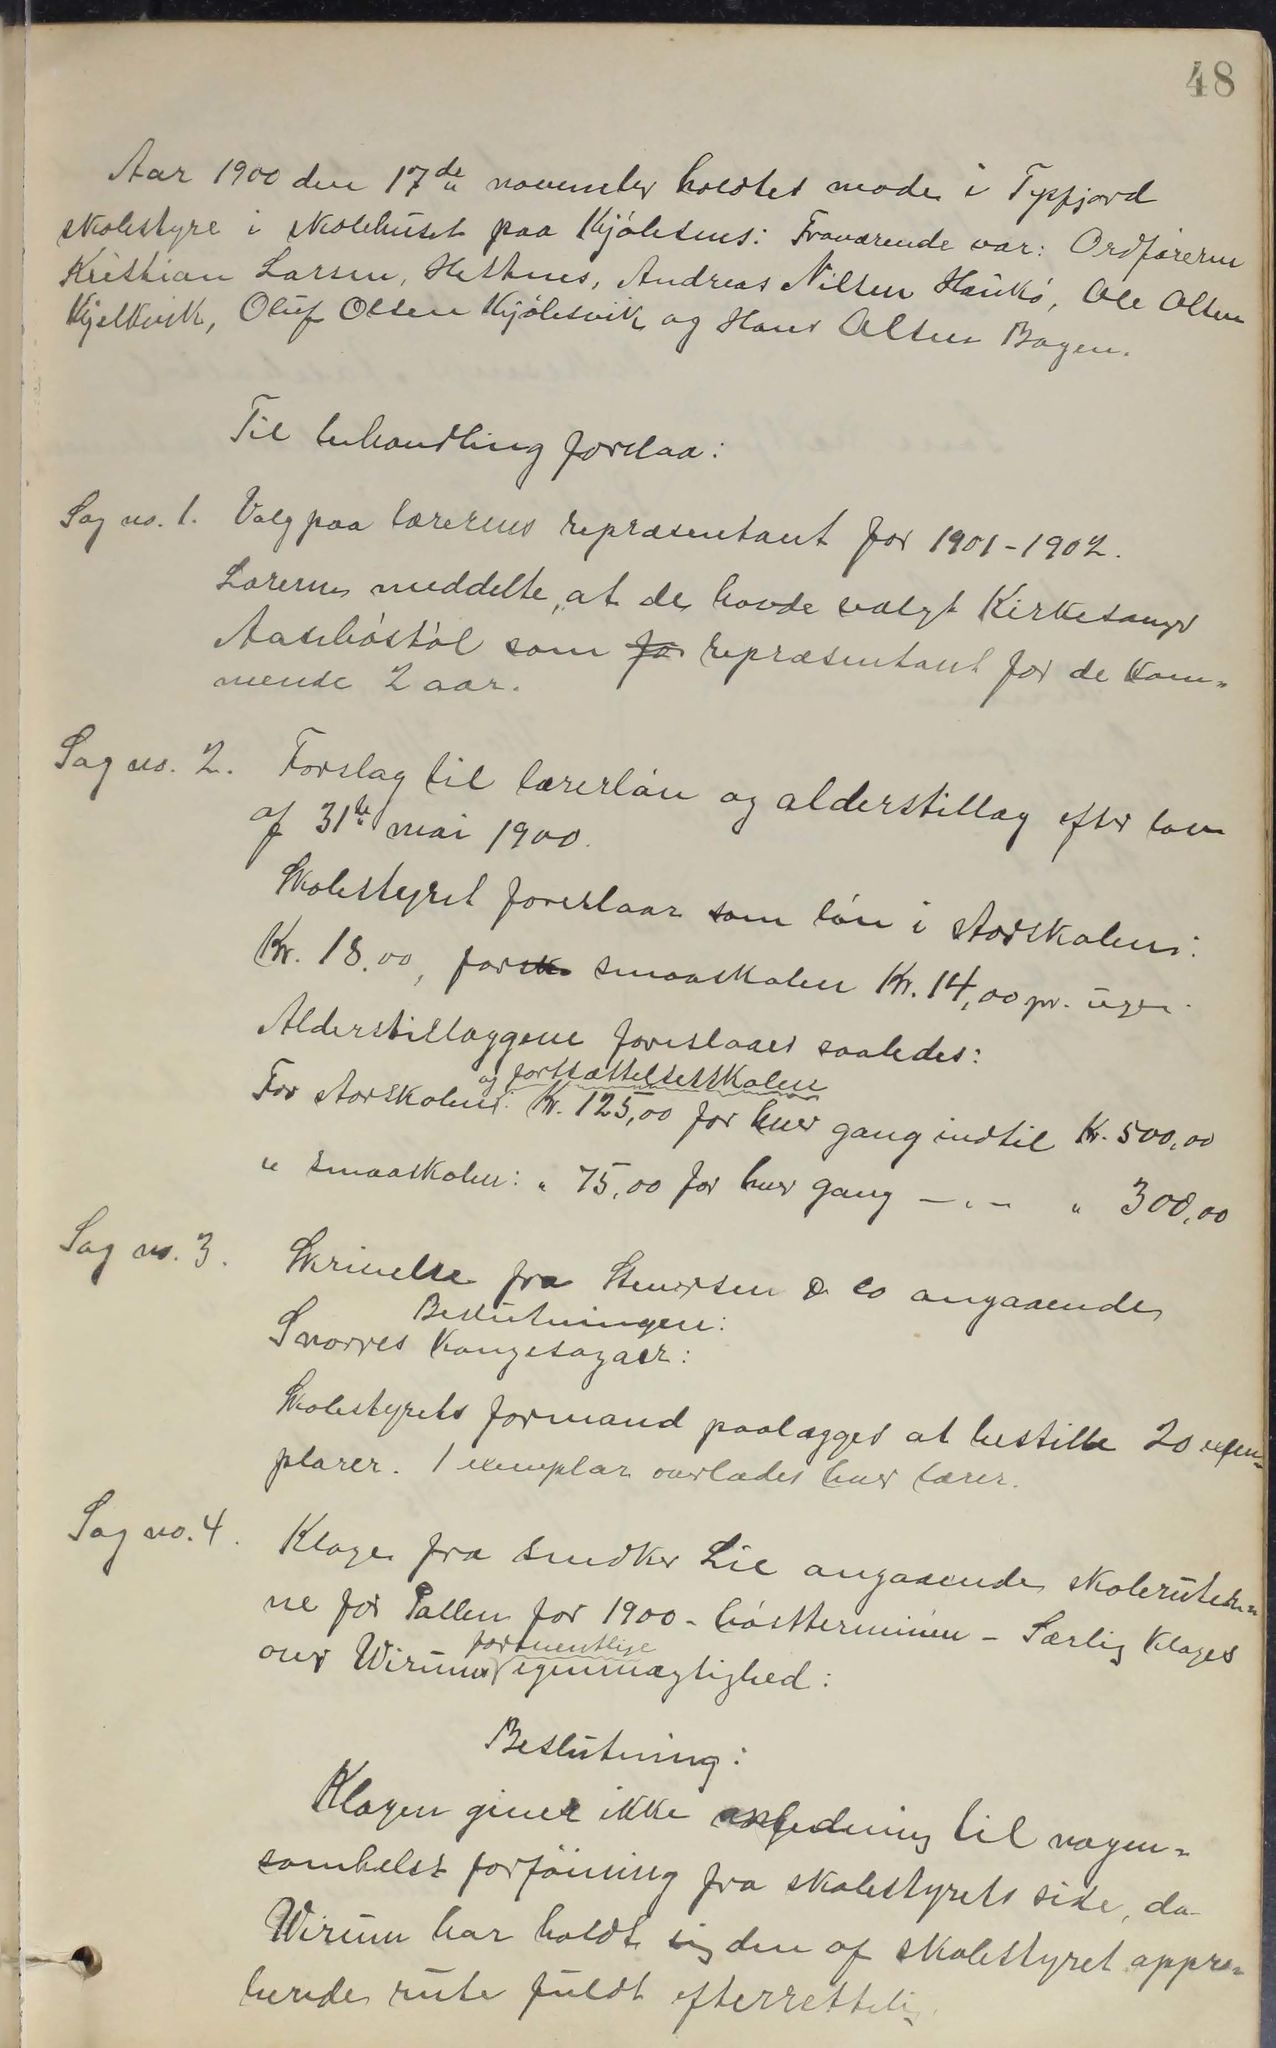 48
Aar 1900 den 17de november holdtes møde i Tysfjord
skolestyre i skolehuset paa Kjölsnes: Fraværende var: Ordføreren
Kristian Larsen, Helnes, Andreas Nilsen Haukö, Ole Olsen
Kjelkvik, Oluf Olsen Kjölesvik og Hans Olsen Bogen.
Til behandling forelaa:
Sag no. 1. Valg paa lærernes repræsentant for 1901-1902.
Lærerne meddelte, at de havde valgt Kirkesanger
som fo repræsentant for de kom-
mende 2 aar.
Sag no. 2. Forslag til lærerløn og alderstillæg efter lov
af 31te mai 1900.
Skolestyret foreslaar som løn i storskolen:
Kr. 18.00, for sk smaaskolen Kr. 14,00 pr. uge.
Alderstillæggene foreslaaes saaledes:
og fortsættelsesskolen
For storskolen: Kr. 125,00 for hver gang indtil Kr. 500,00
" smaaskolen: " 75,00 for hver gang - " - " 300,00
Sag no. 3. Skrivelse fra Stenersen & co angaaende
Beslutningen:
Snorres Kongesagaer:
Skolestyrets formand paalægges at bestille 20 exem-
plarer. 1 exemplar overlades hver lærer.
Sag no. 4. Klage fra snedker Lie angaaende skoleruter-
ne for Pallen for 1900 - høstterminen - Særlig klages
formentlige
over Wirums egenmægtighed:
Beslutning:
Klagen giver ikke anledning til nogen-
somhelst forføining fra skolestyrets side, da
Wirum har holdt sig den af skolestyret appro-
berede rute fuldt efterrettelig.